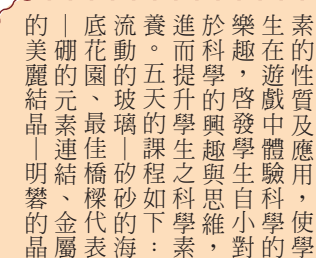 素的性質及應用，使學
生在遊戲中體驗科學的
樂趣，啓發學生自小對
於科學的興趣與思維，
進而提升學生之科學素
養。五天的課程如下：
流動的玻璃｜矽砂的海
底花園、最佳橋樑代表
｜硼的元素連結、金屬
的美麗結晶｜明礬的晶